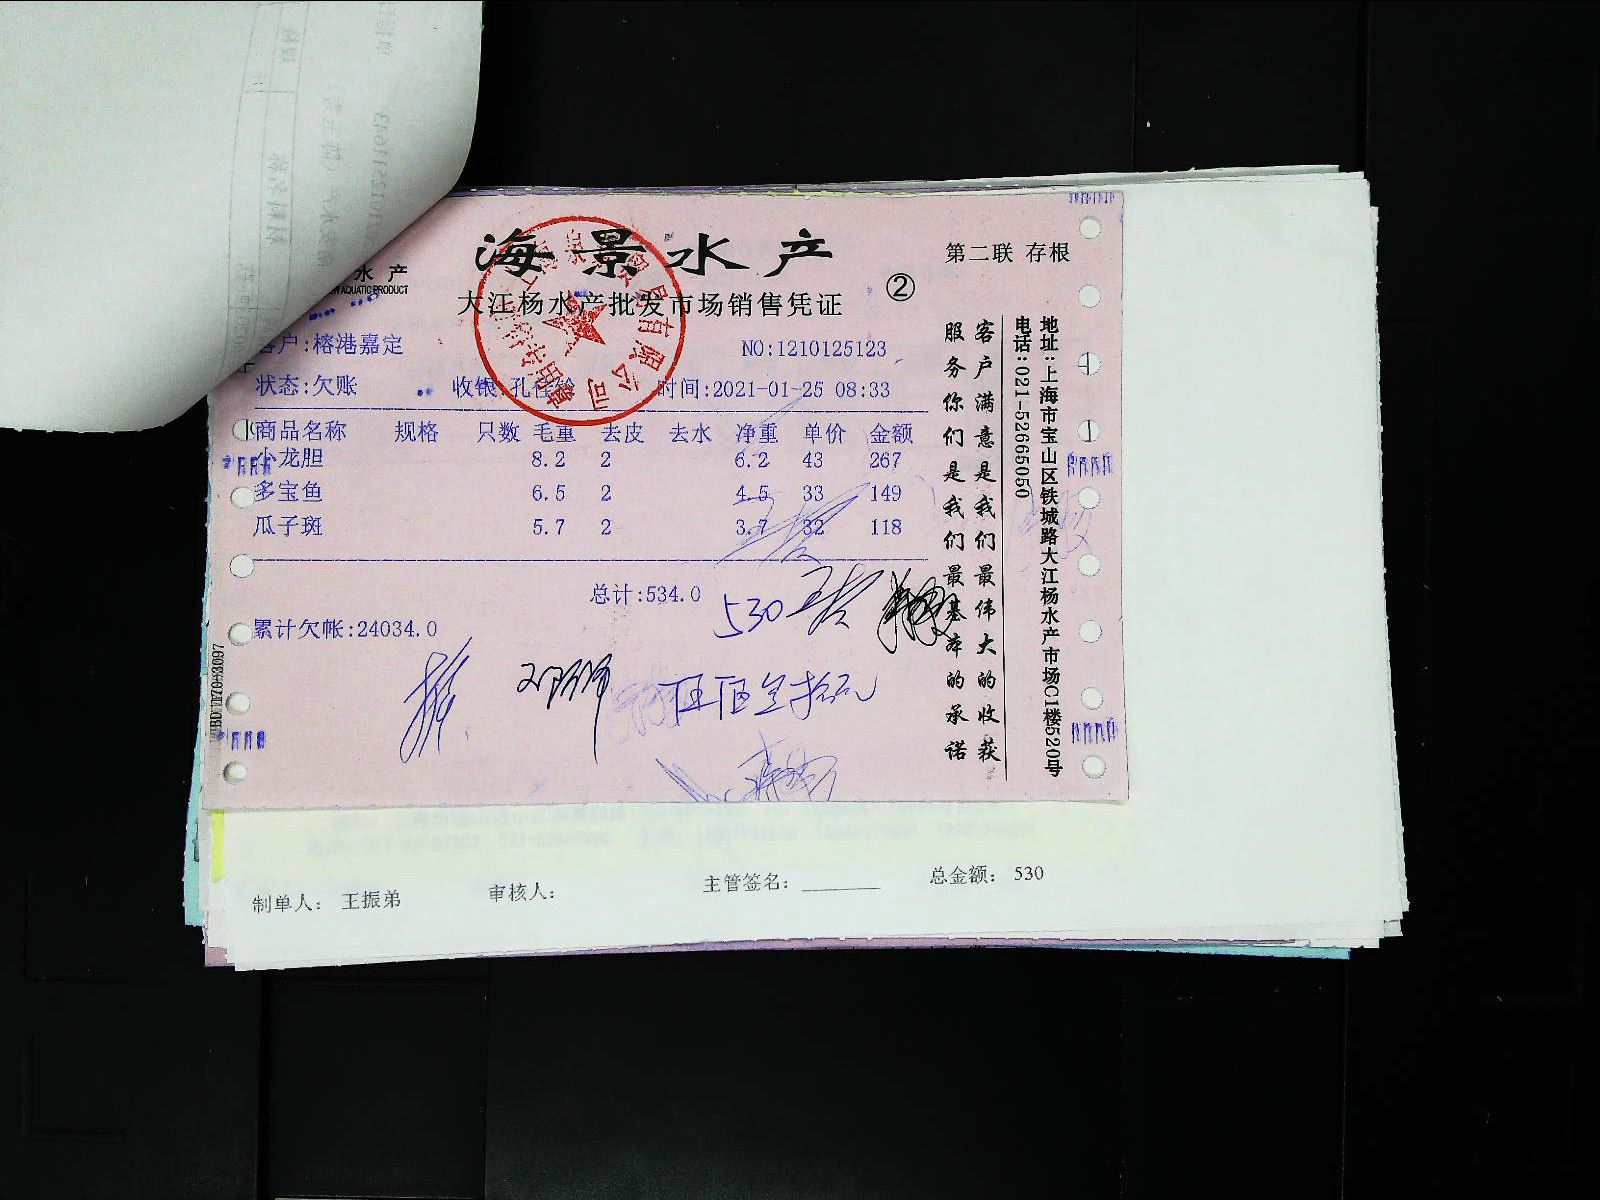 海景水产
第二联 存根
水产
AQUATIC PRODUCT
大江杨水产批发市场销售凭证
②
客户:榕港嘉定
NO:1210125123
状态:欠账
收银:孔
时间:2021-01-25 08:33
商品名称 规格 只数 毛重 去皮 去水 净重 单价 金额
小龙胆 8.2 2 6.2 43 267
多宝鱼 6.5 2 4.5 33 149
瓜子斑 5.7 2 3.7 32 118
总计:534.0
530
累计欠帐:24034.0
伍佰叁拾元
客户满意是我们最伟大的收获
服务你们是我们最基本的承诺
地址:上海市宝山区铁城路大江杨水产市场C1楼520号
电话:021-52665050
贸易有限公司
制单人: 王振弟
审核人:
主管签名:
总金额: 530